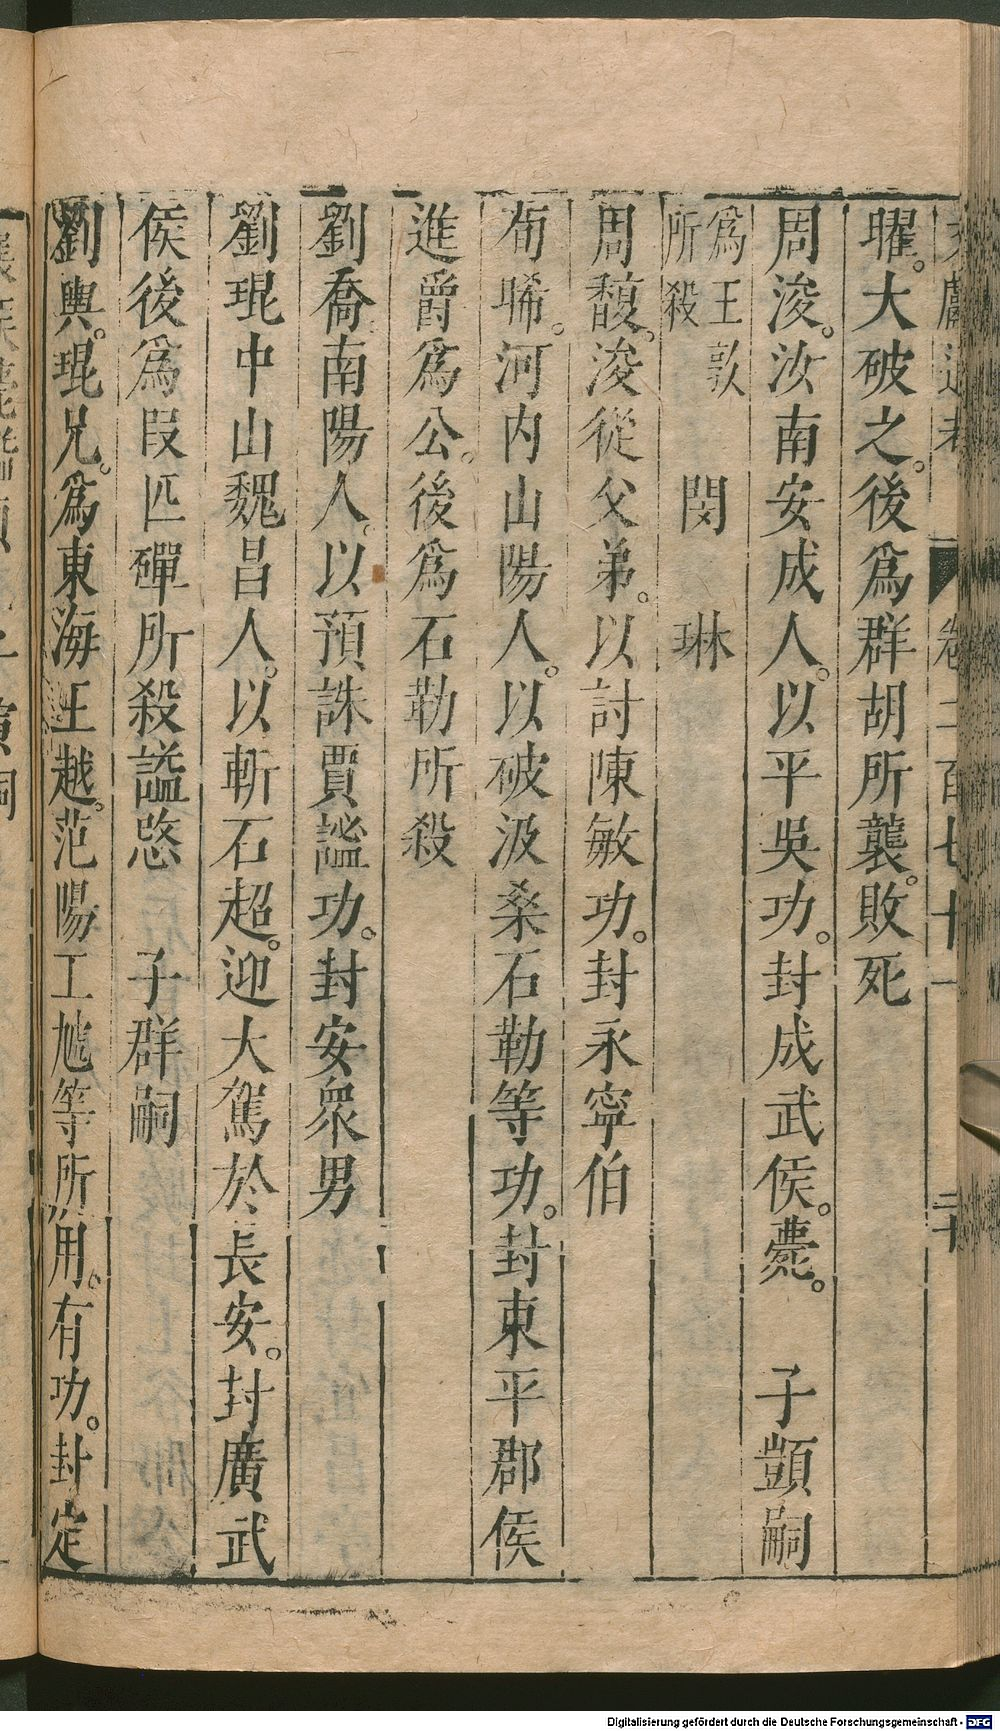 文獻通考 卷二百七十一 二十
曜。大破之。後爲群胡所襲。敗死
周浚。汝南安成人。以平吳功。封成武侯。薨。 子顗嗣
爲王敦所殺 閔 琳
周馥。浚從父弟。以討陳敏功。封永寧伯
荀晞。河内山陽人。以破汲桑石勒等功。封東平郡侯
進爵爲公。後爲石勒所殺
劉喬南陽人。以預誅賈謐功。封安衆男
劉琨中山魏昌人。以斬石超。迎大駕於長安。封廣武
侯後爲叚匹磾所殺諡愍 子群嗣
劉輿。琨兄。爲東海王越。范陽王虓等所用。有功。封定